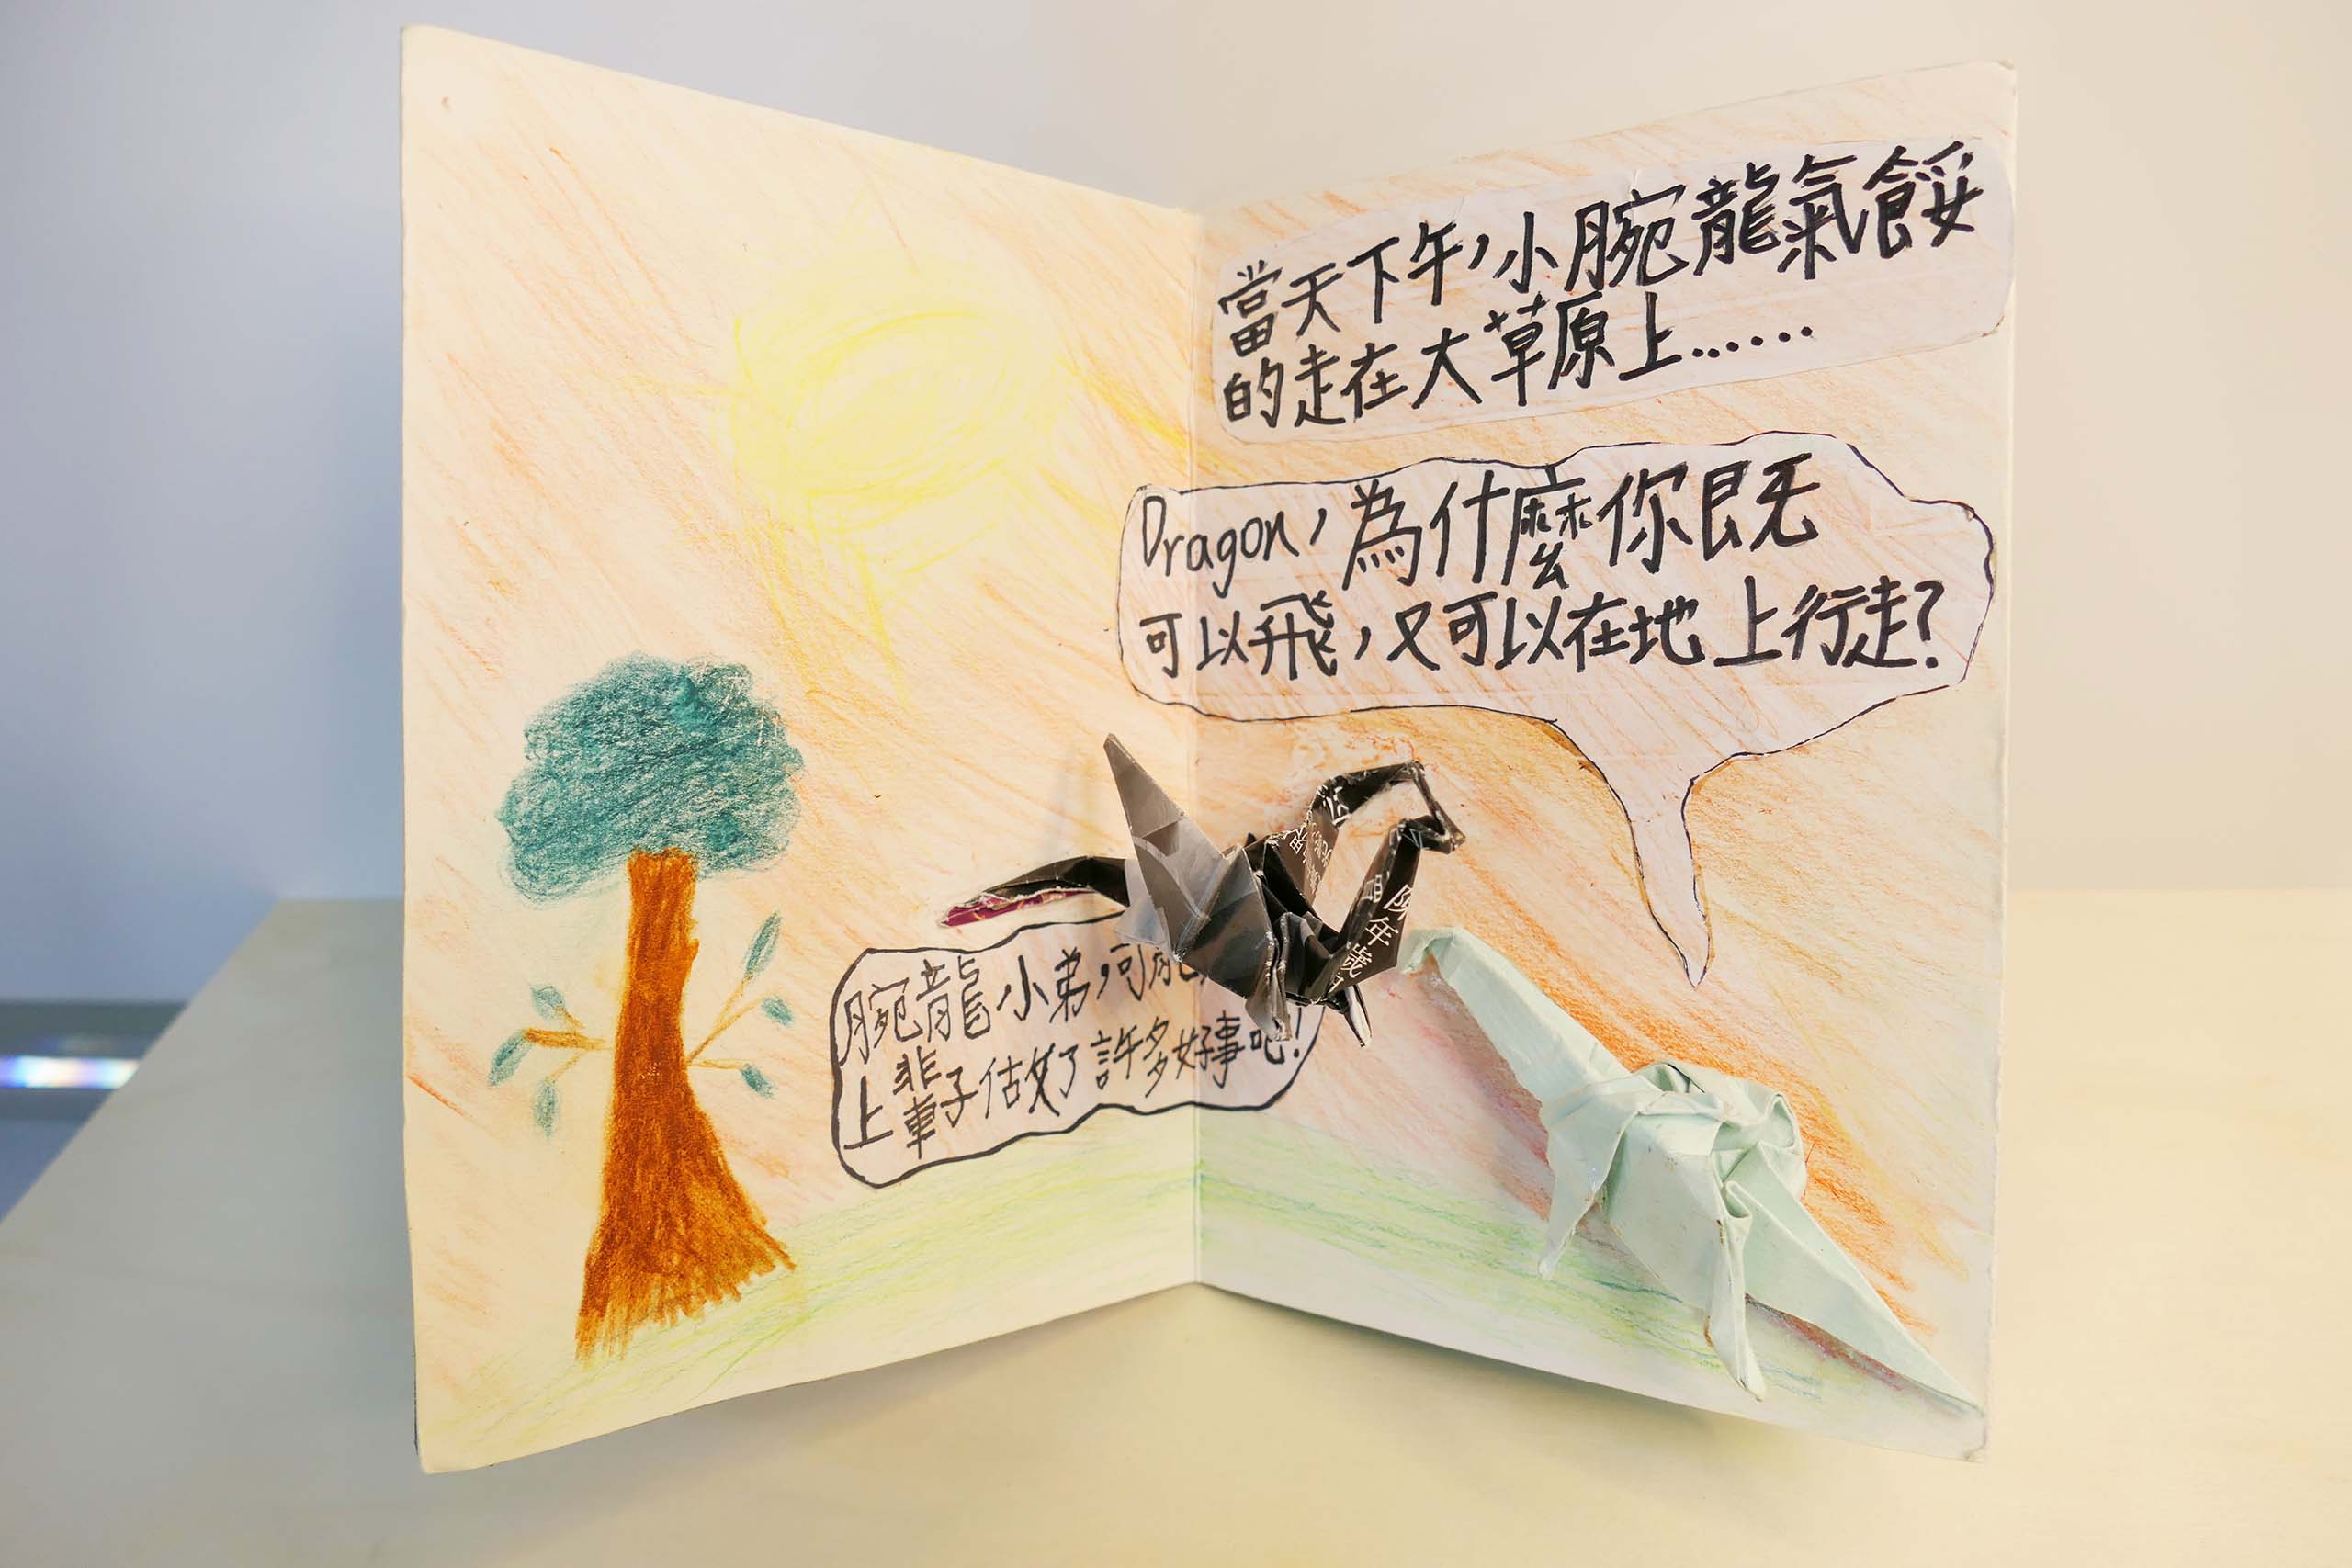 當天下午,小腕龍氣餒
的走在大草原上......
Dragon,為什麼你既
可以飛,又可以在地上行走?
腕龍小弟,可能
上輩子估攵了許多好事吧!
陳年
歲